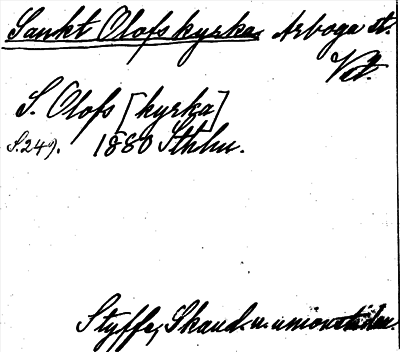 Sankt Olofs kyrka, Arboga st.
Vstm.
S. Olofs [kyrka]
S. 249. 1880 Sthlm.
Styffe, Skand. u. unionstiden.